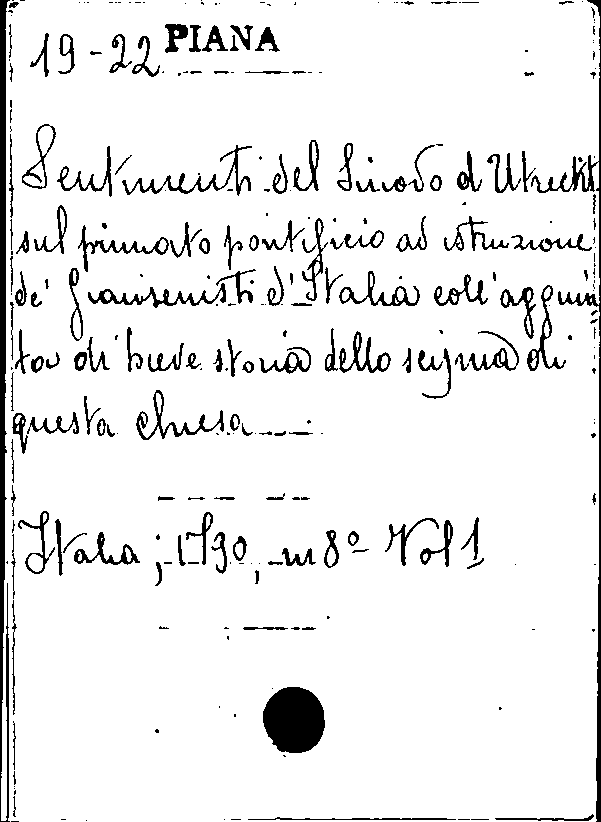 19-22 PIANA
Sentimenti del Sinodo d'Utrecht
sul primato pontificio ad istruzione
de' Giansenisti d'Italia coll'aggiun
ta di breve storia dello scisma di
questa chiesa
Italia; 1790, in 8º Vol 1